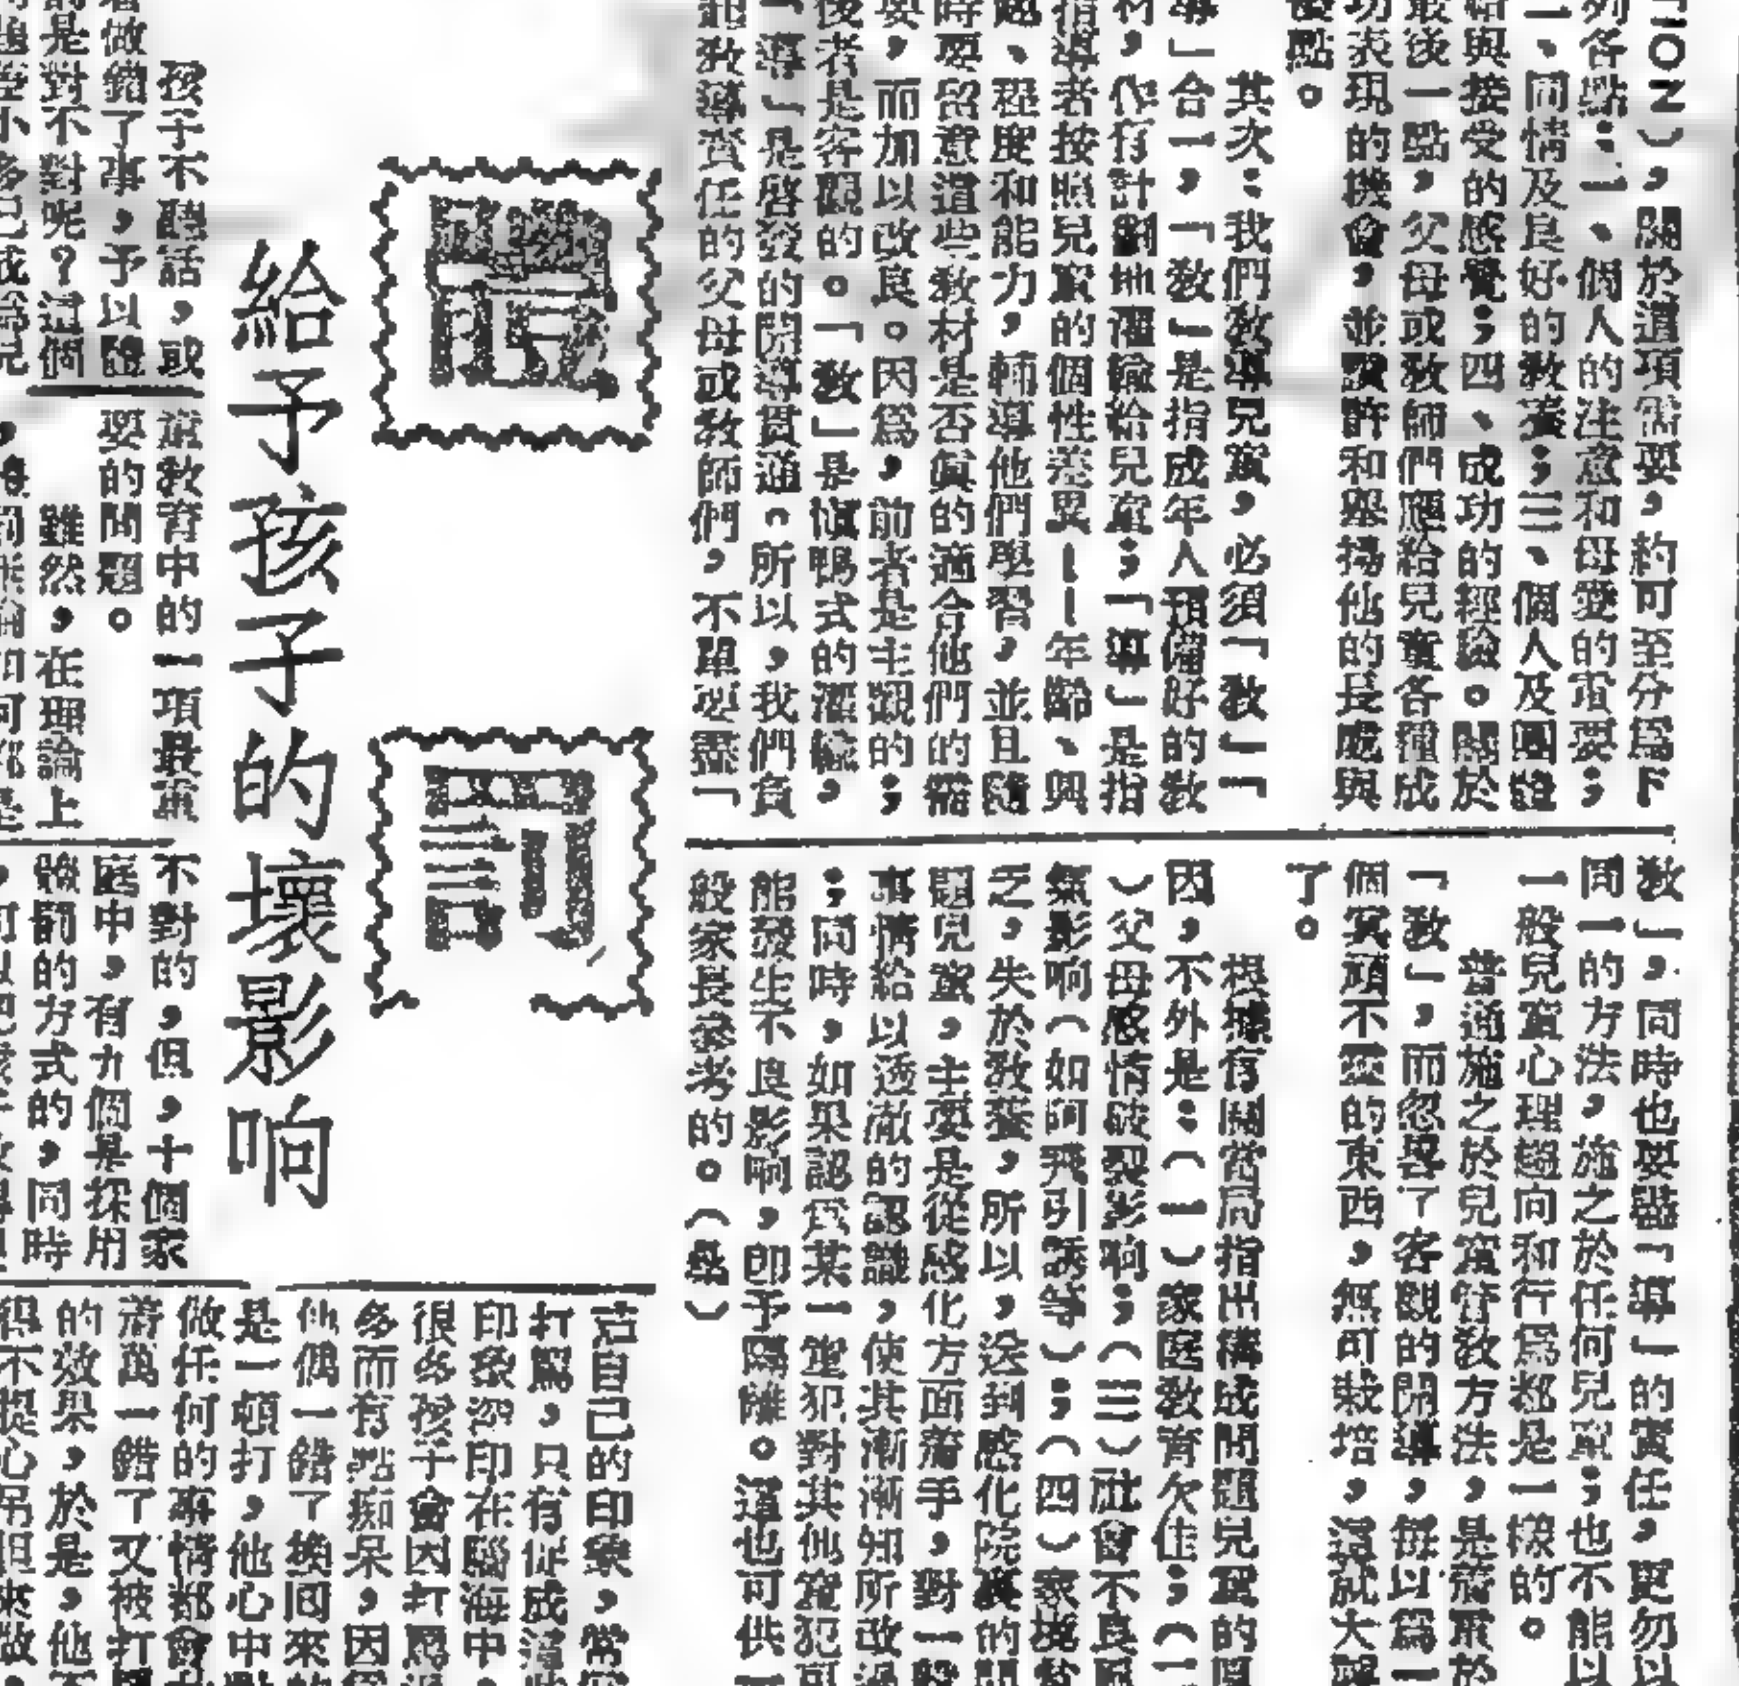 ION），關於這項需要，約可至分爲下
列各點：一、個人的注意和母愛的需要；
二、同情及良好的教養；三、個人及團體
給與接受的感覺；四、成功的經驗。關於
最後一點，父母或教師們應給兒童各種成
功表現的機會，並讚許和舉揚他的長處與
優點。
其次：我們教導兒童，必須「教」「
導」合一，「教」是指成年人預備好的教
材，作有計劃地灌輸給兒童；「導」是指
指導者按照兒童的個性差異——年齡、興
趣、程度和能力，輔導他們學習，並且隨
時要留意這些教材是否眞的適合他們的需
要，而加以改良。因爲，前者是主觀的；
後者是客觀的。「教」是塡鴨式的灌輸，
「導」是啓發的開導貫通。所以，我們負
能教導責任的父母或教師們，不單要盡「
教」，同時也要盡「導」的責任，更勿以
同一的方法，施之於任何兒童；也不能以
一般兒童心理趨向和行爲都是一樣的。
普通施之於兒童管教方法，是着重於
「教」，而忽畧了客觀的開導，每以爲一
個冥頑不靈的東西，無可栽培，這就大錯
了。
根據有關當局指出構成問題兒童的原
因，不外是：（一）家庭教育欠佳；（二
）父母感情破裂影响；（三）社會不良風
氣影响（如阿飛引誘等）；（四）家境貧
乏，失於教養，所以，送到感化院裏的問
題兒童，主要是從感化方面着手，對一般
事情給以透澈的認識，使其漸漸知所改過
；同時，如果認爲某一童犯對其他童犯可
能發生不良影响，卽予隔離。這也可供一
般家長參考的。（桑）
體罰
給予孩子的壞影响
孩子不聽話，或
者做錯了事，予以體
的是對不對呢？這個
童教育中的一項最重
要的問題。
雖然，在理論上
不對的，但，十個家
庭中，有九個是採用
體罰的方式的，同時
自己的印象，常
打駡，只有促成
印象深印在腦海中，
很多孩子會因打駡過
多而有點痴呆，因爲
他偶一錯了換回來的
是一頓打，他心中
做任何的事情都會
着萬一錯了又被打
的效果，於是，他不
得不提心吊胆來做，